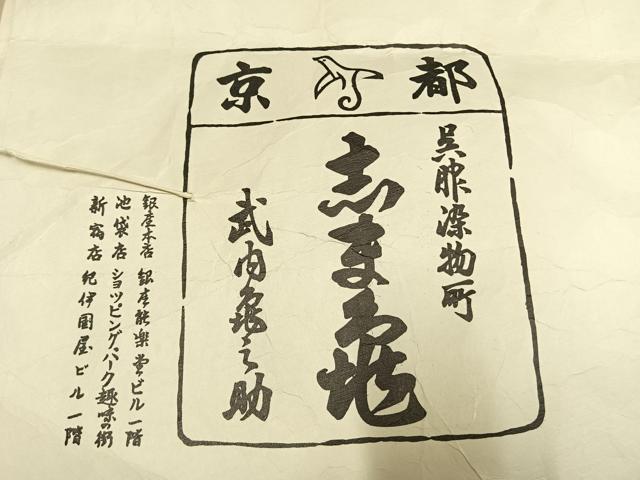 京都
呉服染物所
志ま亀
武内亀之助
銀座本店 銀座能楽堂ビル一階
池袋店 ショッピング・パーク趣味の街
新宿店 紀伊國屋ビル一階